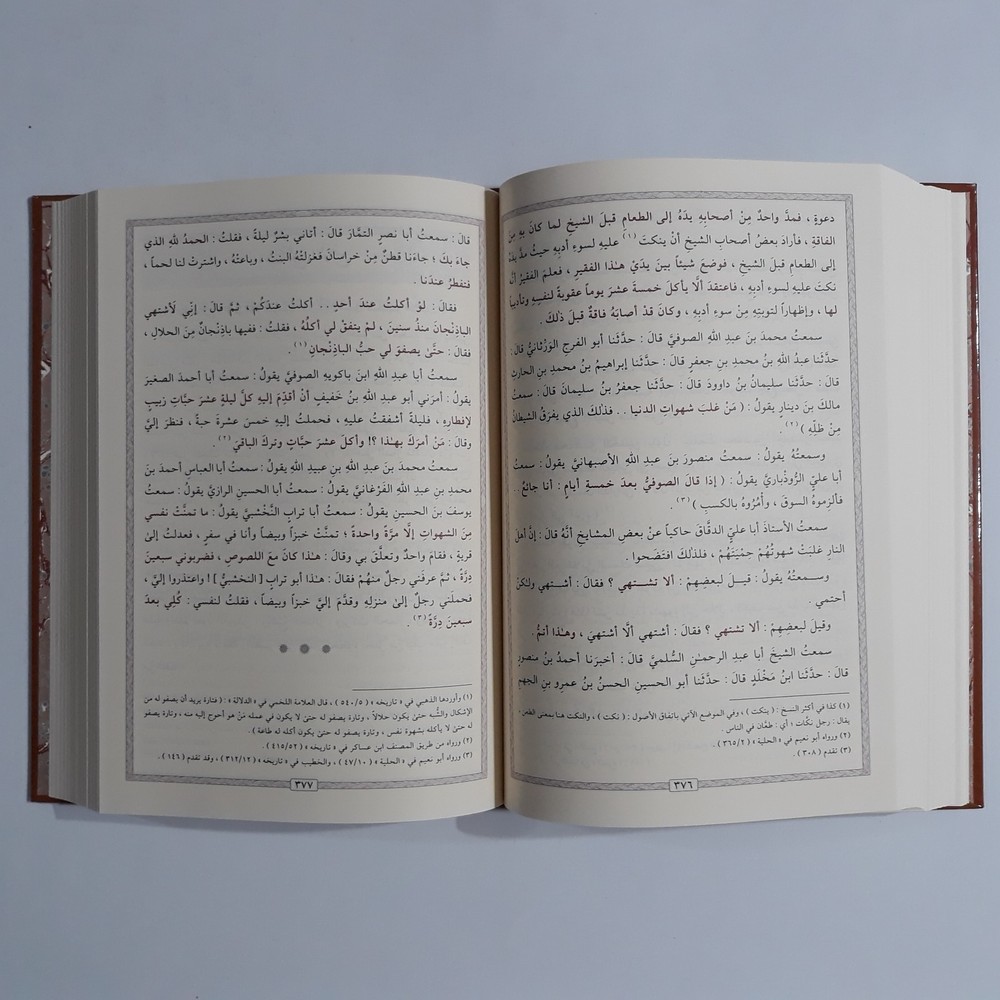 دعوةٍ ، فمدَّ واحدٌ مِنْ أصحابِهِ يدَهُ إلى الطعامِ قبلَ الشيخِ لما كانَ بهِ مِنَ
الفاقةِ ، فأرادَ بعضُ أصحابِ الشيخِ أنْ ينكتَ (١) عليهِ لسوءِ أدبِهِ حيثُ مدَّ يدَهُ
إلى الطعامِ قبلَ الشيخِ ، فوضعَ شيئاً بينَ يديْ هـٰذا الفقيرِ ، فعلمَ الفقيرُ أنَّهُ
نكتَ عليهِ لسوءِ أدبِهِ ، فاعتقدَ ألَّا يأكلَ خمسةَ عشرَ يوماً عقوبةً لنفسِهِ وتأديباً
لها ، وإظهاراً لتوبتِهِ مِنْ سوءِ أدبِهِ ، وكانَ قدْ أصابَهُ فاقةٌ قبلَ ذلكَ .
سمعتُ محمدَ بنَ عبدِ اللهِ الصوفيَّ قالَ : حدَّثَنا أبو الفرجِ الوَرْثانيُّ قالَ :
حدَّثَنا عبدُ اللهِ بنُ محمدِ بنِ جعفرٍ قالَ : حدَّثَنا إبراهيمُ بنُ محمدِ بنِ الحارثِ
قالَ : حدَّثَنا سليمانُ بنُ داوودَ قالَ : حدَّثَنا جعفرُ بنُ سليمانَ قالَ : سمعتُ
مالكَ بنَ دينارٍ يقولُ : ( مَنْ غلبَ شهواتِ الدنيا . . فذلكَ الذي يفرَقُ الشيطانُ
مِنْ ظلِّهِ ) (٢) .
وسمعتُهُ يقولُ : سمعتُ منصورَ بنَ عبدِ اللهِ الأصبهانيَّ يقولُ : سمعتُ
أبا عليٍّ الرُّوذْباريَّ يقولُ : ( إذا قالَ الصوفيُّ بعدَ خمسةِ أيامٍ : أنا جائعٌ . .
فألزموهُ السوقَ ، وأْمُرُوهُ بالكسبِ ) (٣) .
سمعتُ الأستاذَ أبا عليٍّ الدقَّاقَ حاكياً عنْ بعضِ المشايخِ أنَّهُ قالَ : إنَّ أهلَ
النارِ غلبَتْ شهوتُهُمْ حِمْيَتَهُمْ ، فلذلكَ افتَضَحوا .
وسـمعتُهُ يقولُ : قيـلَ لبعضِهِمْ : ألا تشـتهي ؟ فقالَ : أشـتهي ولـٰكنْ
أحتمي .
وقيلَ لبعضِهِمْ : ألا تشتهي ؟ فقالَ : أشتهي ألَّا أشتهيَ ، وهـٰذا أتمُّ .
سمعتُ الشيخَ أبا عبدِ الرحمـٰنِ السُّلميَّ قالَ : أخبرَنا أحمدُ بنُ منصورٍ
قالَ : حدَّثَنا ابنُ مَخْلَدٍ قالَ : حدَّثَنا أبو الحسينِ الحسنُ بنُ عمرِو بنِ الجهمِ
(١) كذا في أكثر النسخ : ( ينكت ) ، وفي الموضع الآتي باتفاق الأصول : ( نكت ) ، والنكت هنا بمعنى الطعن ،
يقال : رجل نكَّات ؛ أي : طعَّان في الناس .
(٢) ورواه أبو نعيم في « الحلية » ( ٣٦٥/٢ ) .
(٣) تقدم ( ٣٠٨ ) .
٣٧٦
قالَ : سمعتُ أبا نصرٍ التمَّارَ قالَ : أتاني بشرٌ ليلةً ، فقلتُ : الحمدُ للهِ الذي
جاءَ بكَ ؛ جاءَنا قطنٌ مِنْ خراسانَ فغزلَتْهُ البنتُ ، وباعَتْهُ ، واشترَتْ لنا لحماً ،
فتفطرُ عندَنا .
فقالَ : لوْ أكلتُ عندَ أحدٍ . . أكلتُ عندَكُمْ ، ثمَّ قالَ : إنِّي لَأشتهي
الباذنْجانَ منذُ سنينَ ، لمْ يتفقْ لي أكلُهُ ، فقلتُ : ففيها باذنْجانٌ مِنَ الحلالِ ،
فقالَ : حتَّىٰ يصفوَ لي حبُّ الباذنْجانِ (١) .
سمعتُ أبا عبدِ اللهِ ابنَ باكويهِ الصوفيَّ يقولُ : سمعتُ أبا أحمدَ الصغيرَ
يقولُ : أمرَني أبو عبدِ اللهِ بنُ خَفيفٍ أنْ أقدِّمَ إليهِ كلَّ ليلةٍ عشرَ حبَّاتِ زبيبٍ
لإفطارِهِ ، فليلةً أشفقتُ عليهِ ، فحملتُ إليهِ خمسَ عشرةَ حبةً ، فنظرَ إليَّ
وقالَ : مَنْ أمرَكَ بهـٰذا ؟! وأكلَ عشرَ حبَّاتٍ وتركَ الباقيَ (٢) .
سمعتُ محمدَ بنَ عبدِ اللهِ بنِ عبيدِ اللهِ يقولُ : سمعتُ أبا العباسِ أحمدَ بنَ
محمدِ بنِ عبدِ اللهِ الفَرْغانيَّ يقولُ : سمعتُ أبا الحسينِ الرازيَّ يقولُ : سمعتُ
يوسفَ بنَ الحسينِ يقولُ : سمعتُ أبا ترابٍ النَّخْشبيَّ يقولُ : ما تمنَّتْ نفسي
مِنَ الشهواتِ إلَّا مرَّةً واحدةً ؛ تمنَّتْ خبزاً وبيضاً وأنا في سفرٍ ، فعدلتُ إلىٰ
قريةٍ ، فقامَ واحدٌ وتعلَّقَ بي وقالَ : هـٰذا كانَ معَ اللصوصِ ، فضربوني سبعينَ
دِرَّةً ، ثمَّ عرفَني رجلٌ منهُمْ فقالَ : هـٰذا أبو ترابٍ [ النخشبيُّ ] ! واعتذروا إليَّ ،
فحملَني رجلٌ إلىٰ منزلِهِ وقدَّمَ إليَّ خبزاً وبيضاً ، فقلتُ لنفسي : كُلِي بعدَ
سبعينَ دِرَّةً (٣) .
(١) وأوردها الذهبي في « تاريخه » ( ٥٤٠/٥ ) ، قال العلامة اللخمي في « الدلالة » : ( فتارة يريد أن يصفو له من
الإشكال والشُّبه حتىٰ يكون حلالاً ، وتارة يصفو له حتىٰ لا يكون في عمله مَنْ هو أحوج إليه منه ، وتارة يصفو
له حتىٰ لا يأكله بشهوة نفس ، وتارة يصفو له حتىٰ يكون أكله له طاعة ) .
(٢) ورواه من طريق المصنف ابن عساكر في « تاريخه » ( ٤١٥/٥٢ ) .
(٣) ورواه أبو نعيم في « الحلية » ( ٤٧/١٠ ) ، والخطيب في « تاريخه » ( ٣١٢/١٢ ) ، وقد تقدم ( ١٤٦ ) .
٣٧٧